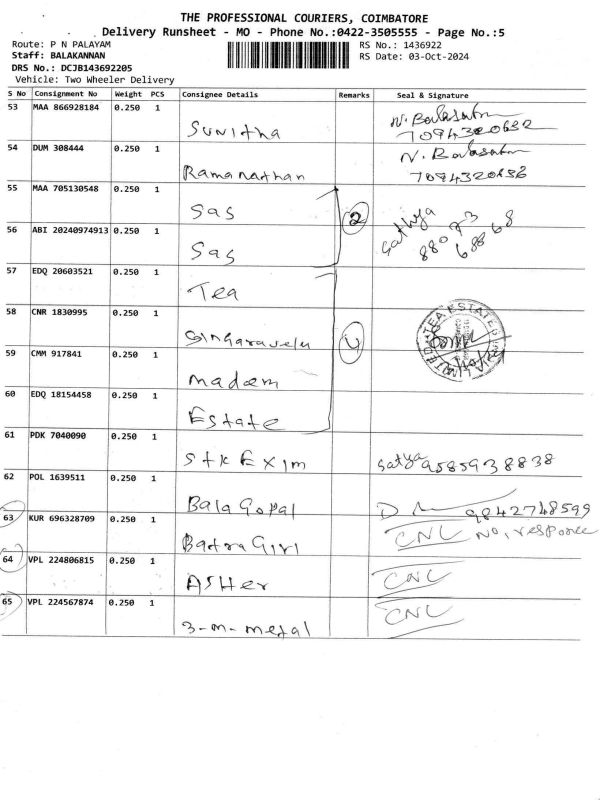 THE PROFESSIONAL COURIERS, COIMBATORE
Delivery Runsheet - MO - Phone No.:0422-3505555 - Page No.:5
Route: P N PALAYAM RS No.: 1436922
Staff: BALAKANNAN RS Date: 03-Oct-2024
DRS No.: DCJB143692205
Vehicle: Two Wheeler Delivery
S No Consignment No Weight PCS Consignee Details Remarks Seal & Signature
53 MAA 866928184 0.250 1 Sunitha N. Balasubm
7094320632
54 DUM 308444 0.250 1 Ramanathan N. Balasubm
7094320636
55 MAA 705130548 0.250 1 Sas 2 Sathya
56 ABI 20240974913 0.250 1 Sas
57 EDQ 20603521 0.250 1 Tea
58 CNR 1830995 0.250 1 Singaravelu 4
59 CMM 917841 0.250 1 madam
60 EDQ 18154458 0.250 1 Estate
61 PDK 7040090 0.250 1 Stk Exim Satya 9585938838
62 POL 1639511 0.250 1 Bala Gopal 9842748599
63 KUR 696328709 0.250 1 Badra Giri CNL No, response
64 VPL 224806815 0.250 1 ASHer CNL
65 VPL 224567874 0.250 1 3-m-metal CNL